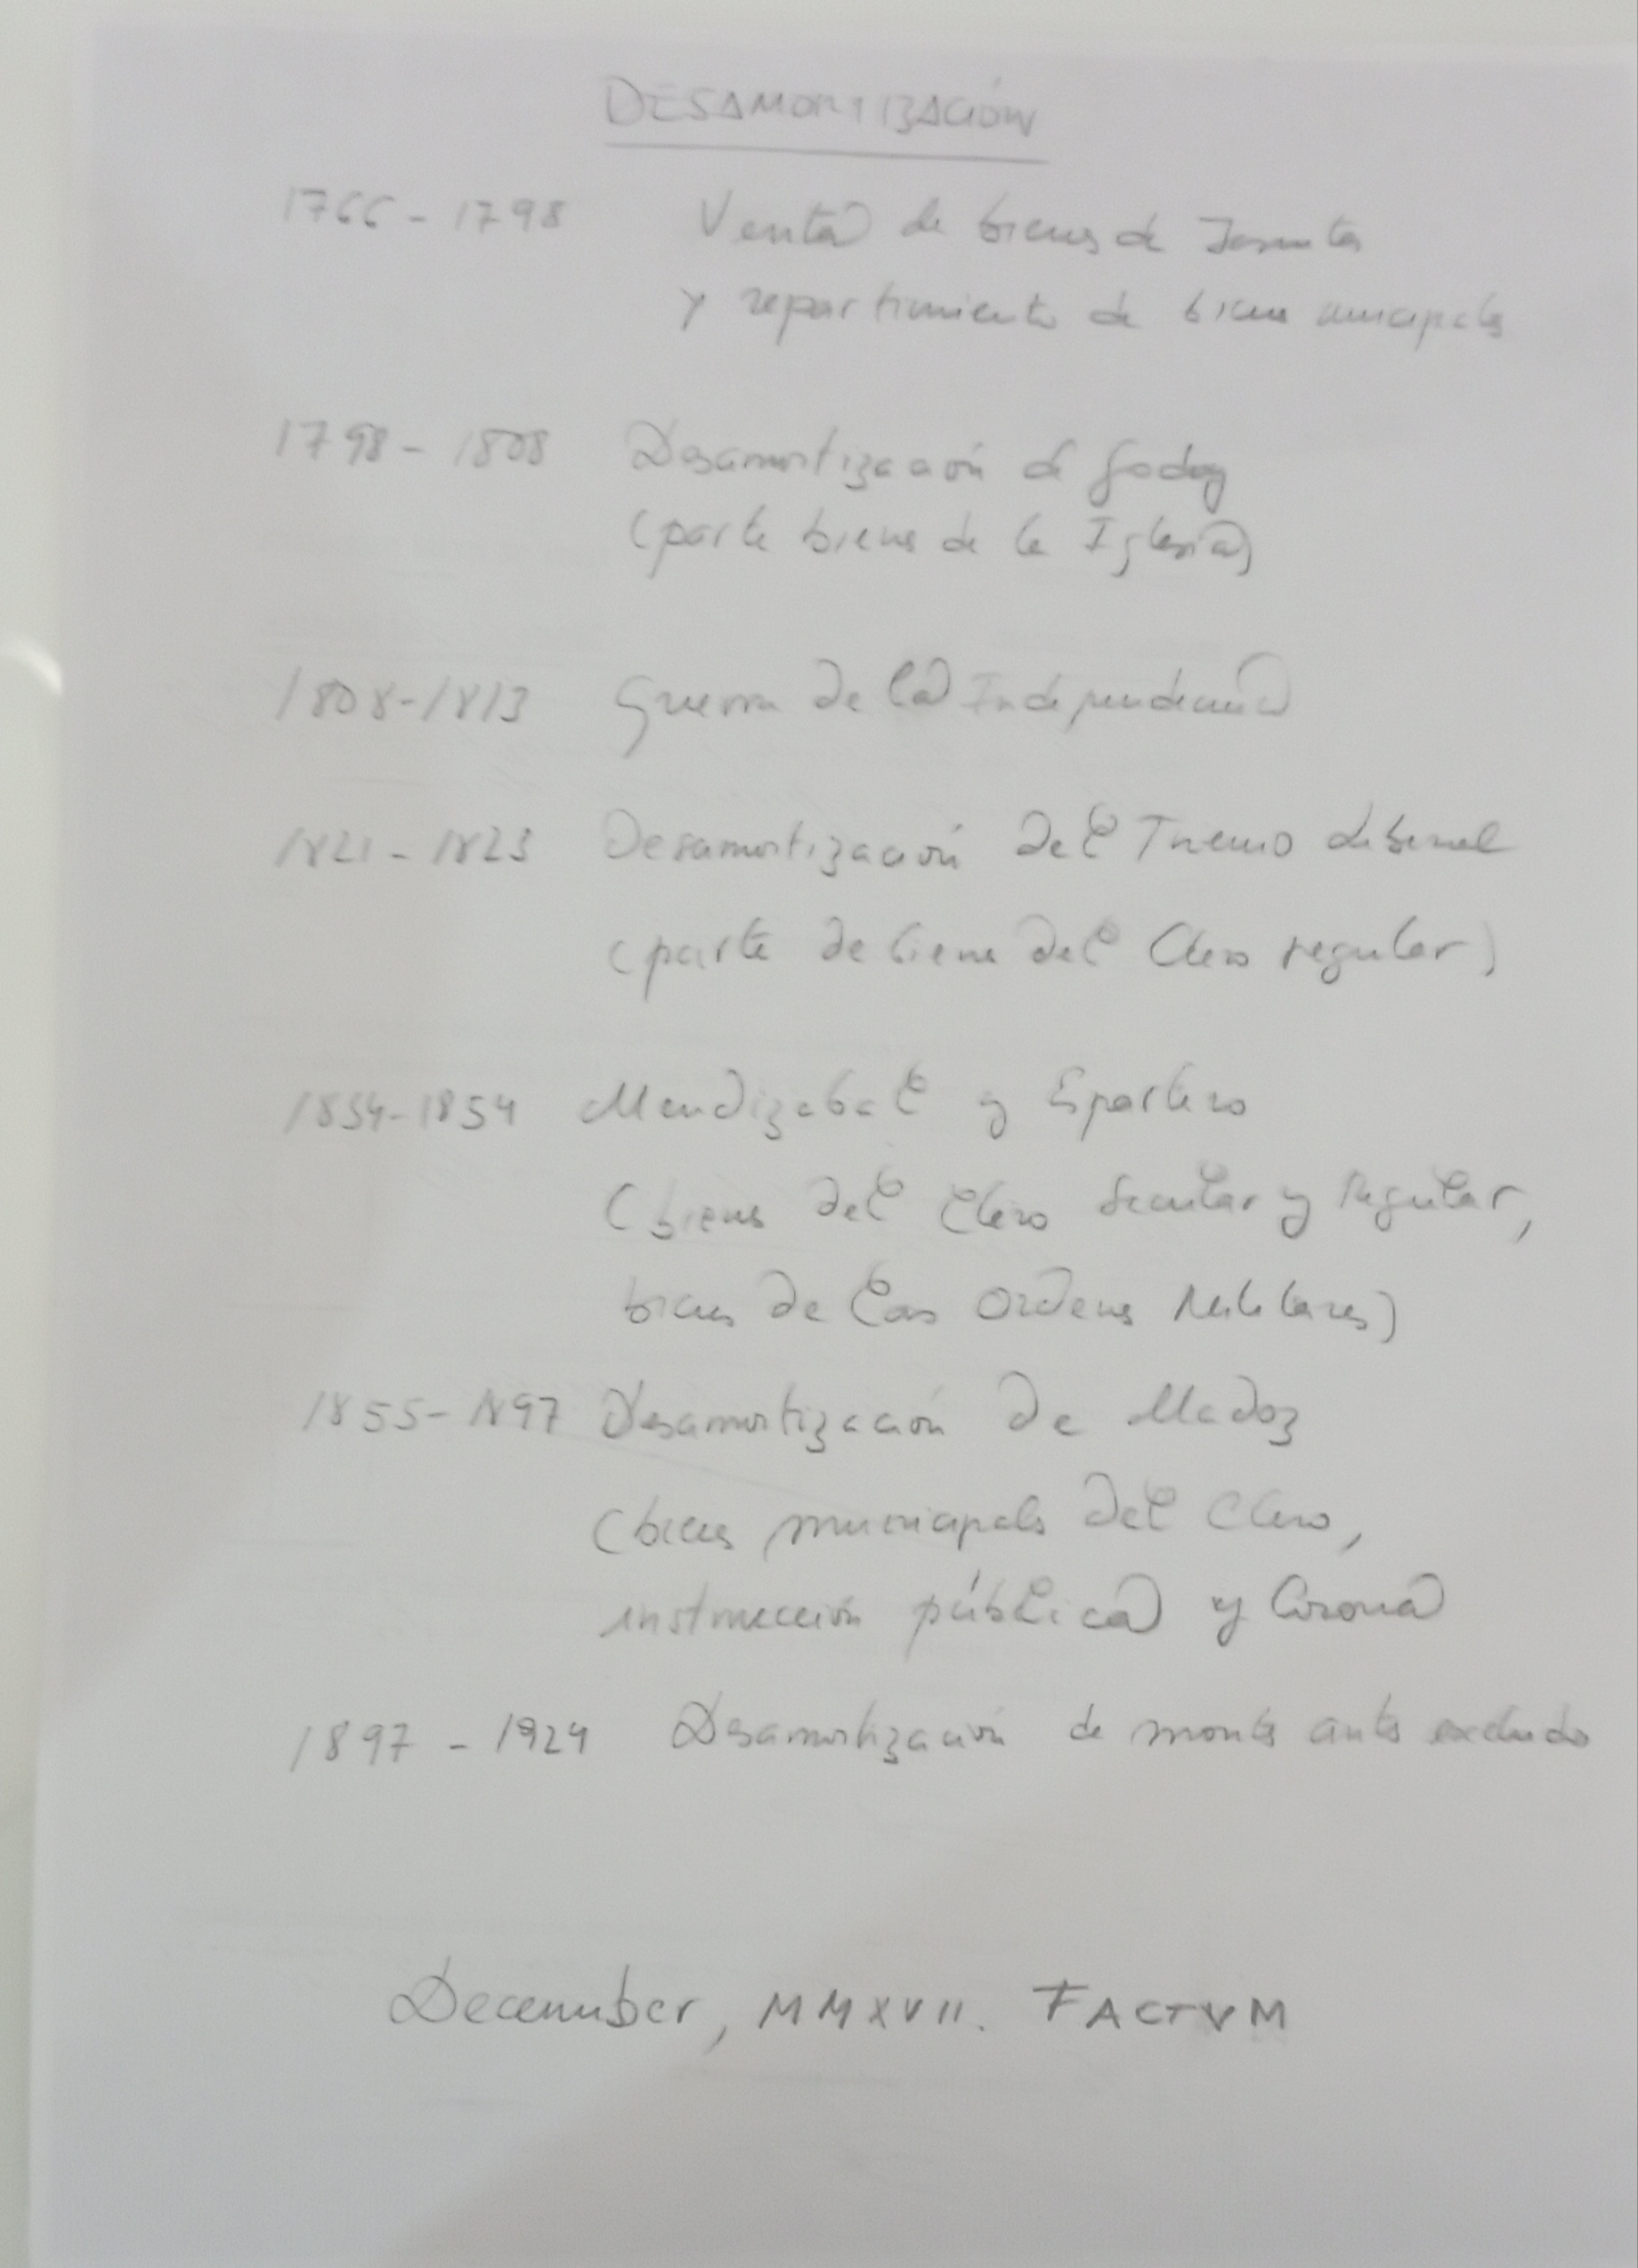 DESAMORTIZACIÓN
1766 - 1798 Venta de bienes de Jesuitas
y repartimiento de bienes municipales
1798 - 1808 Desamortización de Godoy
(parte bienes de la Iglesia)
1808-1813 Guerra de la Independencia
1821 - 1823 Desamortización del Trienio Liberal
(parte de bienes del Clero regular)
1834-1854 Mendizabal y Espartero
(bienes del Clero Secular y Regular,
bienes de las Ordenes Militares)
1855-1897 Desamortización de Madoz
(bienes municipales del Clero,
instrucción pública y Corona
1897 - 1924 Desamortización de montes antes excluidos
December, MMXVII. FACTVM